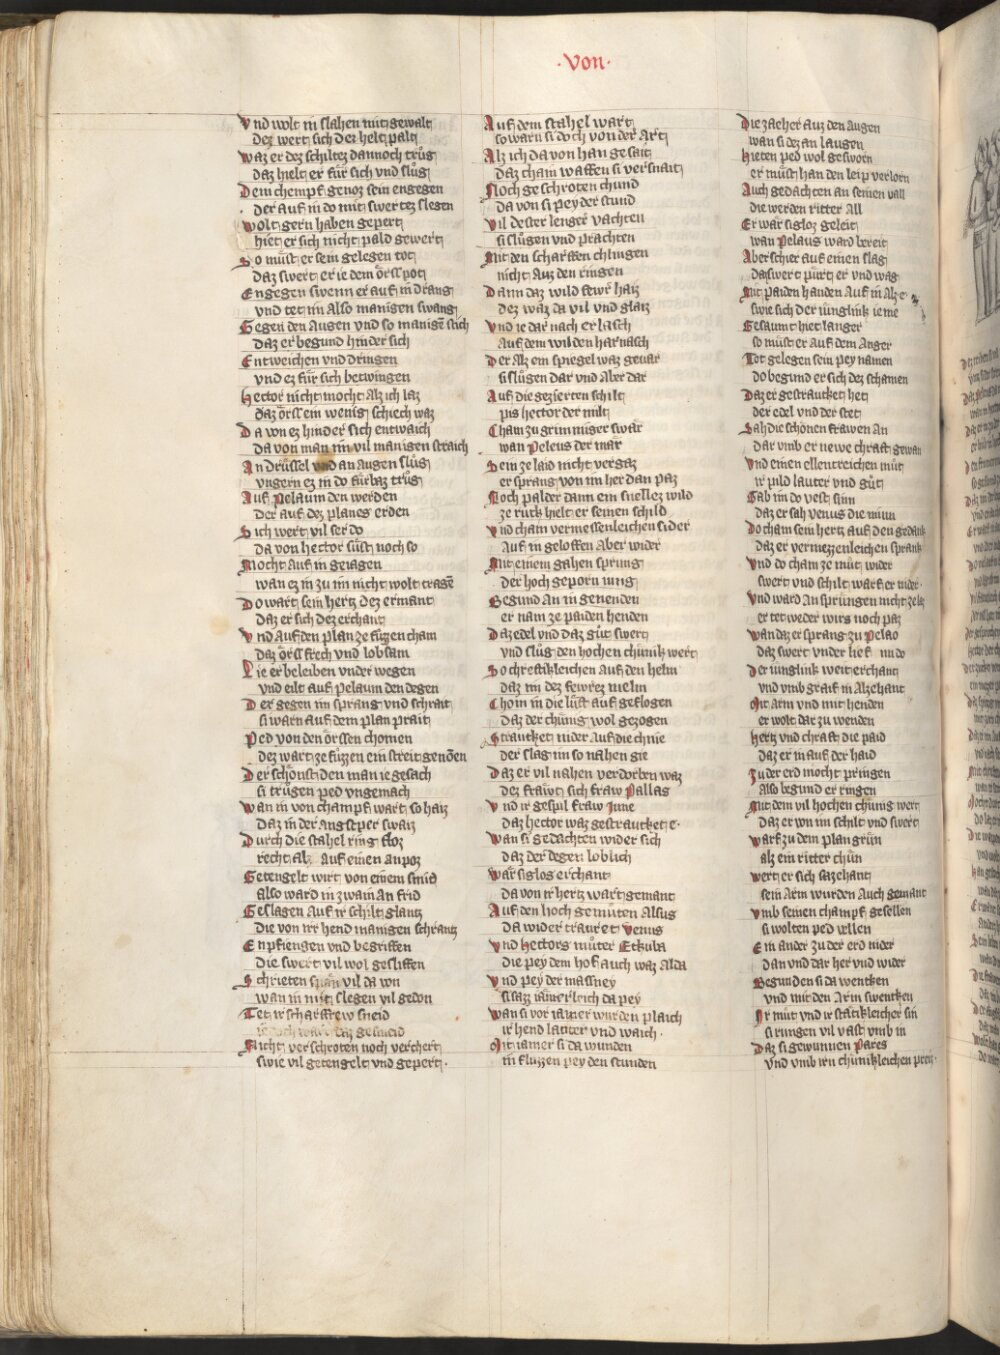 ·Von·
Vnd wolt in slahen mit gewalt
dez wert sich der helt palt
Waz er dez schiltez dannoch trůg
daz hielt er für sich vnd slůg
Dem chempf genoz sein engegen
der auf in do mit swertez slegen
Wolt gern haben gepert
hiet er sich nicht pald gewert
So müst er sein gelegen tot
daz swert er ie dem örss pot
Engegen swenn er auf in drang
vnd tet im also manigen swang
Gegen den augen vnd so manigē stich
daz er begund hinder sich
Entweichen vnd dringen
vnd ez für sich betwingen
Hector nicht mocht alz ich laz
daz örss ein wenig schiech waz
Da von ez hinder sich entwaich
da von man im vil manigen straich
An drüssel vnd an augen slůg
vngern ez in do fürbaz trůg
Auf Pelaum den werden
der auf dez planes erden
Sich wert vil ser do
da von hector süst noch so
Mocht auf in geiagen
wan ez in zu im nicht wolt tragē
Do wart sein hertz dez ermant
daz er sich dez erchant
Vnd auf den plan ze füzen cham
daz örss frech vnd lobsam
Lie er beleiben vnder wegen
vnd eilt auf pelaum den degen
Der gegen im sprang vnd schrait
si warn auf dem plan prait
Ped von den örssen chomen
dez wart ze füzzen ein streit genōen
Der schönst den man ie gesach
si trůgen ped vngemach
Wan in von champf wart so haiz
daz in der angstper swaiz
Durch die stahel ring floz
recht alz auf einen anpoz
Getengelt wirt von einem smid
also ward in zwain an frid
Geslagen auf ir schilt glantz
die von irr hend manigen schrantz
Enpfiengen vnd begriffen
die swert vil wol gesliffen
Schrieten span vil da von
wan in mit slegen vil gedon
Tet ir scharffew sneid
Nicht verschroten noch verchert
swie vil getengelt vnd gepert·
Auf dem stahel wart
so warn si doch von der art
Alz ich da von han gesait
daz cham waffen si versnait
Noch geschroten chund
da von si pey der stund
Vil dester lenger vachten
si slůgen vnd prachten
Mit den scharffen chlingen
nicht auz den ringen
Dann daz wild fewr haiz
dez waz da vil vnd glaiz
Vnd ie dar nach erlasch
auf dem wilden harnasch
Der alz ein spiegel waz gevar
si slůgen dar vnd aber dar
Auf die gezierten schilt
pis hector der milt
Cham zu grimmiger swär
wan Peleus der mär
Sein ze laid nicht vergaz
er sprang von im her dan paz
Noch palder dann ein snellez wild
ze ruck hielt er seinen schild
Vnd cham vermessenleichen sider
auf in geloffen aber wider
Mit einem gahen sprung
der hoch geporn iung
Begund an in genenden
er nam ze paiden henden
Daz edel vnd daz gůt swert
vnd slůg den hochen chünik wert
So chreftikleichen auf den helm
daz im dez fewrez melm
Choin in die lüft auf geflogen
daz der chüng wol gezogen
Strauchet nider auf die chnie
der slag im so nahen gie
Daz er vil nahen verdorben waz
dez frawt sich fraw Pallas
Vnd ir gespil fraw Iune
daz hector waz gestrauchet e·
Wan si gedachten wider sich
daz der degen loblich
Wär siglos erchant
da von ir hertz wart gemant
Auf den hoch gemüten alsus
da wider trauret Venus
Vnd Hectors můter Eckuba
die pey dem hof auch waz alda
Vnd pey der massney
si sazz iämerleich da pey
Wan si vor iamer wurden plaich
ir hend lauter vnd waich·
Mit iamer si da wunden
in fluzzen pey den stunden
Die zäeher auz den augen
wan si dez an laugen
Hieten ped wol gesworn
er müst han den leip verlorn
Auch gedachten an seinen vall
die werden ritter all
Er wär sigloz geleit
wan Pelaus ward bereit
Aber schier auf einen slag
daz swert pürt er vnd wag
Mit paiden handen auf in alz e·
swie sich der iünglink ie me
Gesaumt hiet langer
so müst er auf dem anger
Tot gelegen sein pey namen
do begund er sich dez schamen
Daz er gestrauchet het
der edel vnd der stet
Sah die schönen frawen an
dar vmb er newe chraft gewan
Vnd einen ellentreichen můt
ir pild lauter vnd gůt
Gab im do vest sinn
daz er sah venus die minn
Do cham sein hertz auf den gedank
daz er vermezzenleichen sprank
Vnd do cham ze můt wider
swert vnd schilt warf er nider·
Vnd ward an sprungen nicht ze laz
er tet weder wirs noch paz
Wan daz er sprang zu Pelao
daz swert vnder lief im do
Der iünglink weit erchant
vnd vmb graif in alzehant
Mit arm vnd mit henden
er wolt dar zu wenden
Hertz vnd chraft die paid
daz er in auf der haid
Zu der erd mocht pringen
also begund er ringen
Mit dem vil hochen chünig wert
daz er von im schilt vnd swert
Warf zu dem plan grün
alz ein ritter chün
Wert er sich sazehant
sein arm wurden auch gemant
Vmb seinen champf gesellen
si wolten ped vellen
Ein ander zu der erd nider
dan vnd dar her vnd wider
Begunden si da wenken
vnd mit den arm swenken
Ir můt vnd ir stätikleicher sin
si rungen vil vast vmb in
Daz si gewunnen Pares
vnd vmb irn chünikleichen preis·